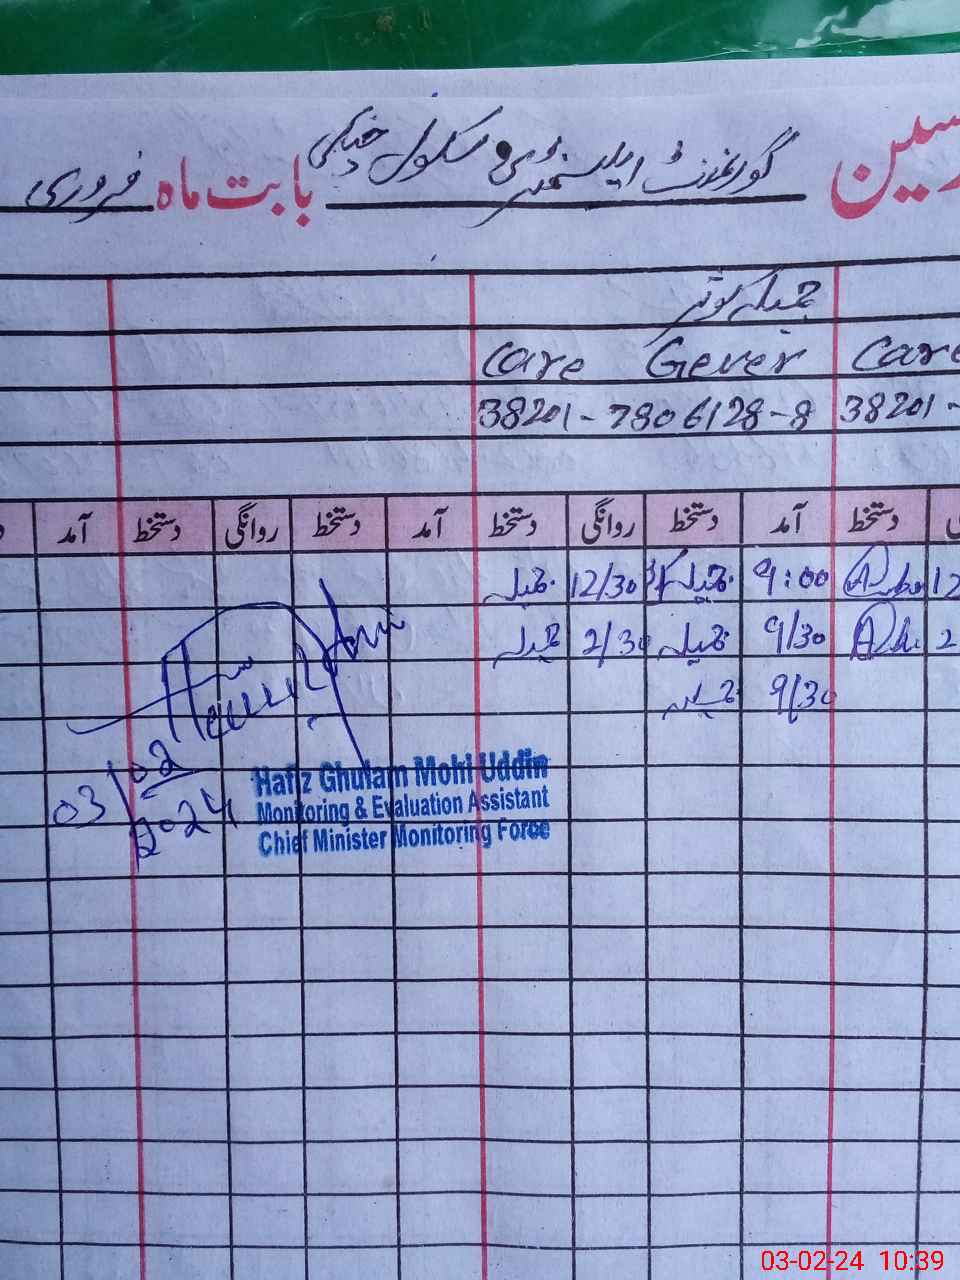 گورنمنٹ ایلیمنٹری سکول بابت ماہ فروری
جمیلہ کوثر
Care Gever Care
38201-7806128-8 38201-
آمد دستخط روانگی دستخط آمد دستخط روانگی دستخط آمد دستخط
9:00 جمیلہ 12/30 جمیلہ
9/30 جمیلہ 2/30 جمیلہ
9/30 جمیلہ
03/02
2024
Hafiz Ghulam Mohi Uddin
Monitoring & Evaluation Assistant
Chief Minister Monitoring Force
03-02-24 10:39